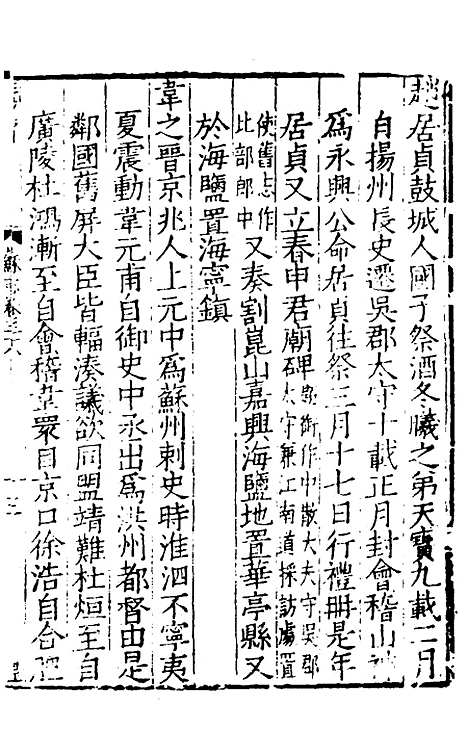 趙居貞鼓城人國子祭酒冬曦之第天寶九載二月
自揚州長史遷吳郡太守十載正月封會稽山神
爲永興公命居貞往祭三月十七日行禮冊是年
居貞又立春申君廟碑題銜作中散大夫守吳郡太守兼江南道採訪處置
使舊志作比部郎中又奏割崑山嘉興海鹽地置華亭縣又
於海鹽置海寧鎮
韋之晉京兆人上元中爲蘇州刺史時淮泗不寧夷
夏震動韋元甫自御史中丞出爲洪州都督由是
鄰國舊屏大臣皆輻湊議欲同盟靖難杜烜至自
廣陵杜鴻漸至自會稽韋睘自京口徐浩自合肥
蘇志卷三六